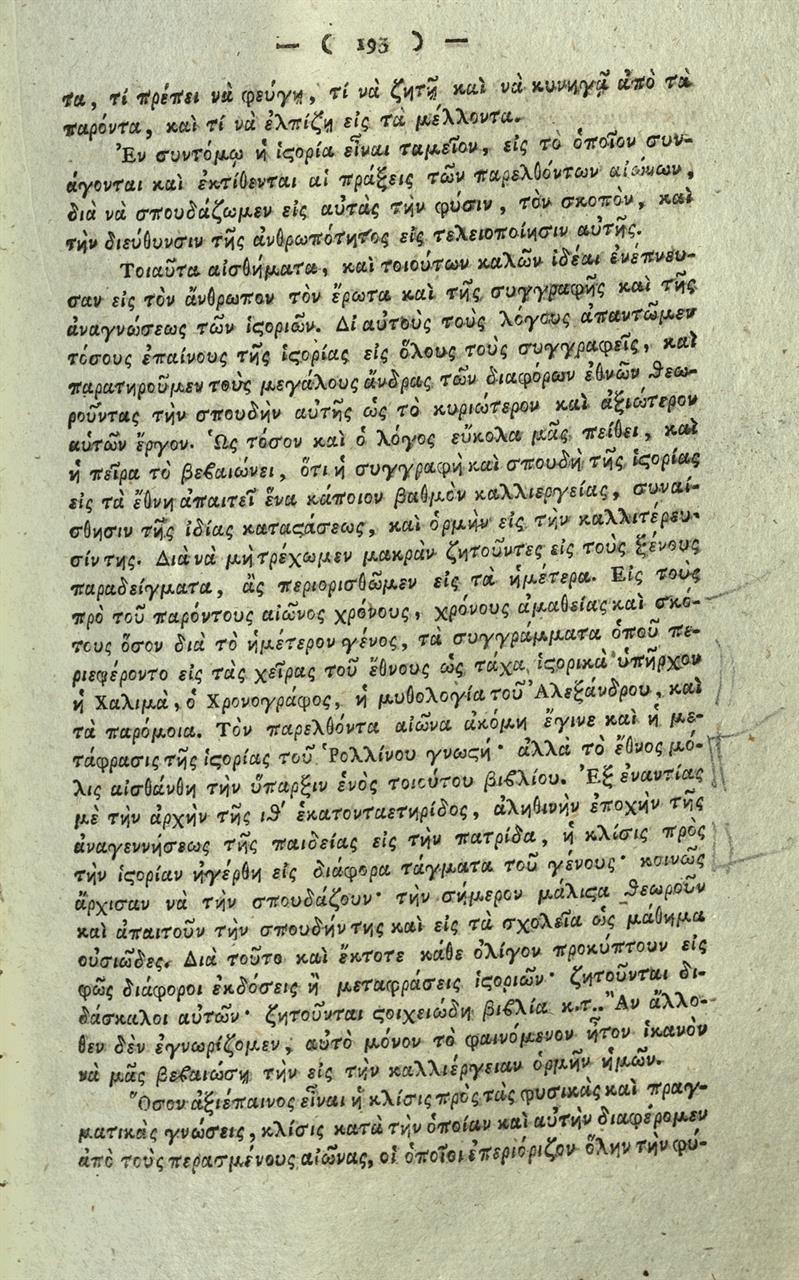 — ( 193 ) —
τα, τί πρέπει νὰ φεύγῃ, τί νὰ ζητῇ καὶ νὰ κυνηγᾷ ἀπὸ τὰ
παρόντα, καὶ τί νὰ ἐλπίζῃ εἰς τὰ μέλλοντα.
Ἐν συντόμῳ ἡ ἱϛορία εἶναι ταμεῖον, εἰς τὸ ὁποῖον συν-
άγονται καὶ ἐκτίθενται αἱ πράξεις τῶν παρελθόντων αἰώνων,
διὰ νὰ σπουδάζωμεν εἰς αὐτὰς τὴν φύσιν, τὸν σκοπὸν, καὶ
τὴν διεύθυνσιν τῆς ἀνθρωπότητος εἰς τελειοποίησιν αὐτῆς.
Τοιαῦτα αἰσθήματα, καὶ τοιούτων καλῶν ἰδέαι ἐνέπνευ-
σαν εἰς τὸν ἄνθρωπον τὸν ἔρωτα καὶ τῆς συγγραφῆς καὶ τῆς
ἀναγνώσεως τῶν ἱϛοριῶν. Δι αὐτοὺς τοὺς λόγους ἀπαντῶμεν
τόσους ἐπαίνους τῆς ἱϛορίας εἰς ὅλους τοὺς συγγραφεῖς, καὶ
παρατηροῦμεν τοὺς μεγάλους ἄνδρας τῶν διαφόρων ἐθνῶν θεω-
ροῦντας τὴν σπουδὴν αὐτῆς ὡς τὸ κυριώτερον καὶ ἀξιώτερον
αὑτῶν ἔργον. Ὡς τόσον καὶ ὁ λόγος εὔκολα μᾶς πείθει, καὶ
ἡ πεῖρα τὸ βεβαιώνει, ὅτι ἡ συγγραφὴ καὶ σπουδὴ τῆς ἱϛορίας
εἰς τὰ ἔθνη ἀπαιτεῖ ἕνα κάποιον βαθμὸν καλλιεργείας, συναί-
σθησιν τῆς ἰδίας καταϛάσεως, καὶ ὁρμὴν εἰς τὴν καλλιτέρευ-
σίν της. Διὰ νὰ μὴ τρέχωμεν μακρὰν ζητοῦντες εἰς τοὺς ξένους
παραδείγματα, ἂς περιορισθῶμεν εἰς τὰ ἡμέτερα. Εἰς τοὺς
πρὸ τοῦ παρόντους αἰῶνος χρόνους, χρόνους ἀμαθείας καὶ σκό-
τους ὅσον διὰ τὸ ἡμέτερον γένος, τὰ συγγράμματα ὁποῦ πε-
ριεφέροντο εἰς τὰς χεῖρας τοῦ ἔθνους ὡς τάχα ἱϛορικὰ ὑπῆρχον
ἡ Χαλιμὰ, ὁ Χρονογράφος, ἡ μυθολογία τοῦ Ἀλεξάνδρου, καὶ
τὰ παρόμοια. Τὸν παρελθόντα αἰῶνα ἀκόμη ἔγινε καὶ ἡ με-
τάφρασις τῆς ἱϛορίας τοῦ Ῥολλίνου γνωϛή· ἀλλὰ τὸ ἔθνος μό-
λις αἰσθάνθη τὴν ὕπαρξιν ἑνὸς τοιούτου βιβλίου. Ἐξ ἐναντίας
μὲ τὴν ἀρχὴν τῆς ιθ' ἑκατονταετηρίδος, ἀληθινὴν ἐποχὴν τῆς
ἀναγεννήσεως τῆς παιδείας εἰς τὴν πατρίδα, ἡ κλίσις πρὸς
τὴν ἱϛορίαν ἠγέρθη εἰς διάφορα τάγματα τοῦ γένους· κοινῶς
ἄρχισαν νὰ τὴν σπουδάζουν· τὴν σήμερον μάλιϛα θεωροῦν
καὶ ἀπαιτοῦν τὴν σπουδήν της καὶ εἰς τὰ σχολεῖα ὡς μάθημα
οὐσιῶδες. Διὰ τοῦτο καὶ ἔκτοτε κάθε ὀλίγον προκύπτουν εἰς
φῶς διάφοροι ἐκδόσεις ἢ μεταφράσεις ἱϛοριῶν· ζητοῦνται δι-
δάσκαλοι αὐτῶν· ζητοῦνται ϛοιχειώδη βιβλία κ.τ.. Ἂν ἄλλο-
θεν δὲν ἐγνωρίζομεν, αὐτὸ μόνον τὸ φαινόμενον ἦτον ἱκανὸν
νὰ μᾶς βεβαιώσῃ τὴν εἰς τὴν καλλιέργειαν ὁρμὴν ἡμῶν.
Ὅσον ἀξιέπαινος εἶναι ἡ κλίσις πρὸς τὰς φυσικὰς καὶ πραγ-
ματικὰς γνώσεις, κλίσις κατὰ τὴν ὁποίαν καὶ αὐτὴν διαφέρομεν
ἀπὸ τοὺς περασμένους αἰῶνας, οἱ ὁποῖοι ἐπεριόριζον ὅλην τὴν φυ-